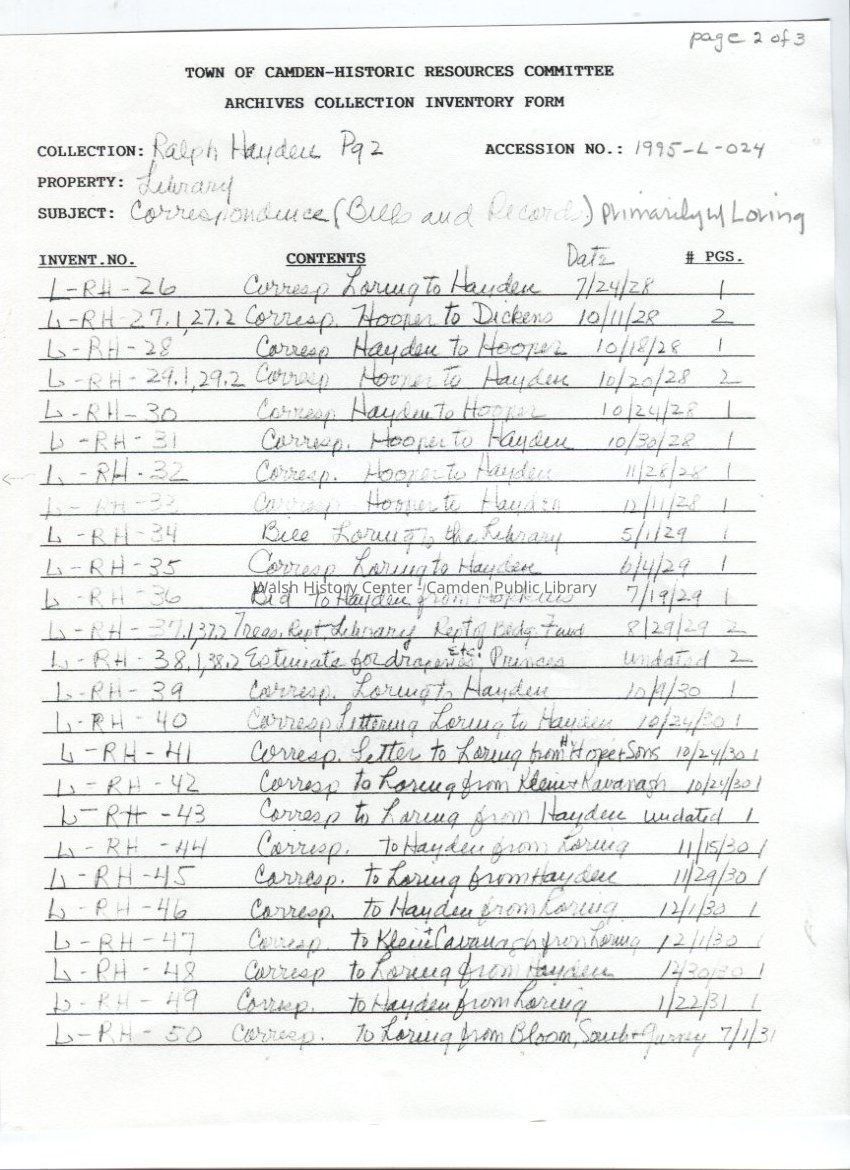 page 2 of 3
TOWN OF CAMDEN-HISTORIC RESOURCES COMMITTEE
ARCHIVES COLLECTION INVENTORY FORM
COLLECTION: Ralph Hayden Pg 2 ACCESSION NO.: 1995-L-024
PROPERTY: Library
SUBJECT: Correspondence (Bills and Records) primarily w/ Loring
INVENT.NO. CONTENTS Date # PGS.
L-RH-26 Corresp Loring to Hayden 7/24/28 1
L-RH-27.1,27.2 Corresp. Hooper to Dickens 10/11/28 2
L-RH-28 Corresp Hayden to Hooper 10/18/28 1
L-RH-29.1,29.2 Corresp Hooper to Hayden 10/20/28 2
L-RH-30 Corresp Hayden to Hooper 10/24/28 1
L-RH-31 Corresp. Hooper to Hayden 10/30/28 1
L-RH-32 Corresp. Hooper to Hayden 11/28/28 1
L-RH-33 Corresp Hooper to Hayden 12/11/28 1
L-RH-34 Bill Loring to the Library 5/1/29 1
L-RH-35 Corresp Loring to Hayden 6/4/29 1
Walsh History Center - Camden Public Library
L-RH-36 Bid to Hayden from Hopkins 7/19/29 1
L-RH-37.1,37.2 Treas. Rept Library Rept of Bldg Fund 8/29/29 2
L-RH-38.1,38.2 Estimate for draperies etc. Princes undated 2
L-RH-39 Corresp. Loring to Hayden 10/9/30 1
L-RH-40 Corresp Lettering Loring to Hayden 10/24/30 1
L-RH-41 Corresp. Letter to Loring from H Hope + Sons 10/24/30 1
L-RH-42 Corresp to Loring from Klein + Kavanagh 10/24/30 1
L-RH-43 Corresp to Loring from Hayden undated 1
L-RH-44 Corresp. to Hayden from Loring 11/15/30 1
L-RH-45 Corresp. to Loring from Hayden 11/29/30 1
L-RH-46 Corresp. to Hayden from Loring 12/1/30 1
L-RH-47 Corresp. to Klein + Cavanagh from Loring 12/1/30 1
L-RH-48 Corresp to Loring from Hayden 12/30/30 1
L-RH-49 Corresp. to Hayden from Loring 1/22/31 1
L-RH-50 Corresp. to Loring from Bloom, South + 7/1/31